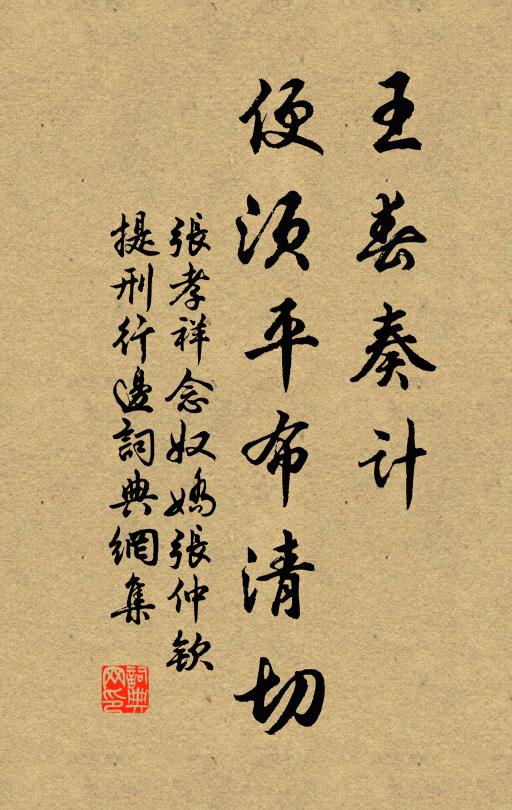 王春奏計
便須平布清切
張孝祥念奴嬌張仲欽
提刑行邊詞典網集
詞典
网印